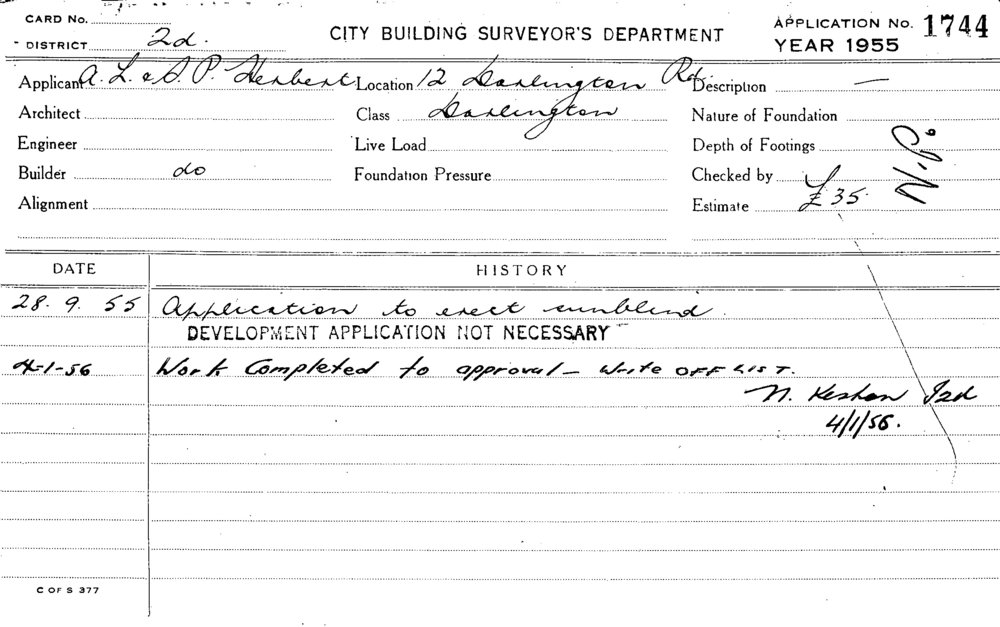 CARD No.
DISTRICT 2d.
CITY BUILDING SURVEYOR'S DEPARTMENT
APPLICATION No. 1744
YEAR 1955
Applicant A. L. & S. P. Herbert Location 12 Darlington Rd. Description —
Architect Class Darlington Nature of Foundation
Engineer Live Load Depth of Footings
Builder do Foundation Pressure Checked by
Alignment Estimate £35
DATE HISTORY
28. 9. 55 Application to erect sunblind.
DEVELOPMENT APPLICATION NOT NECESSARY
4-1-56 Work Completed to approval – Write OFF LIST.
N.
4/1/56.
C OF S 377